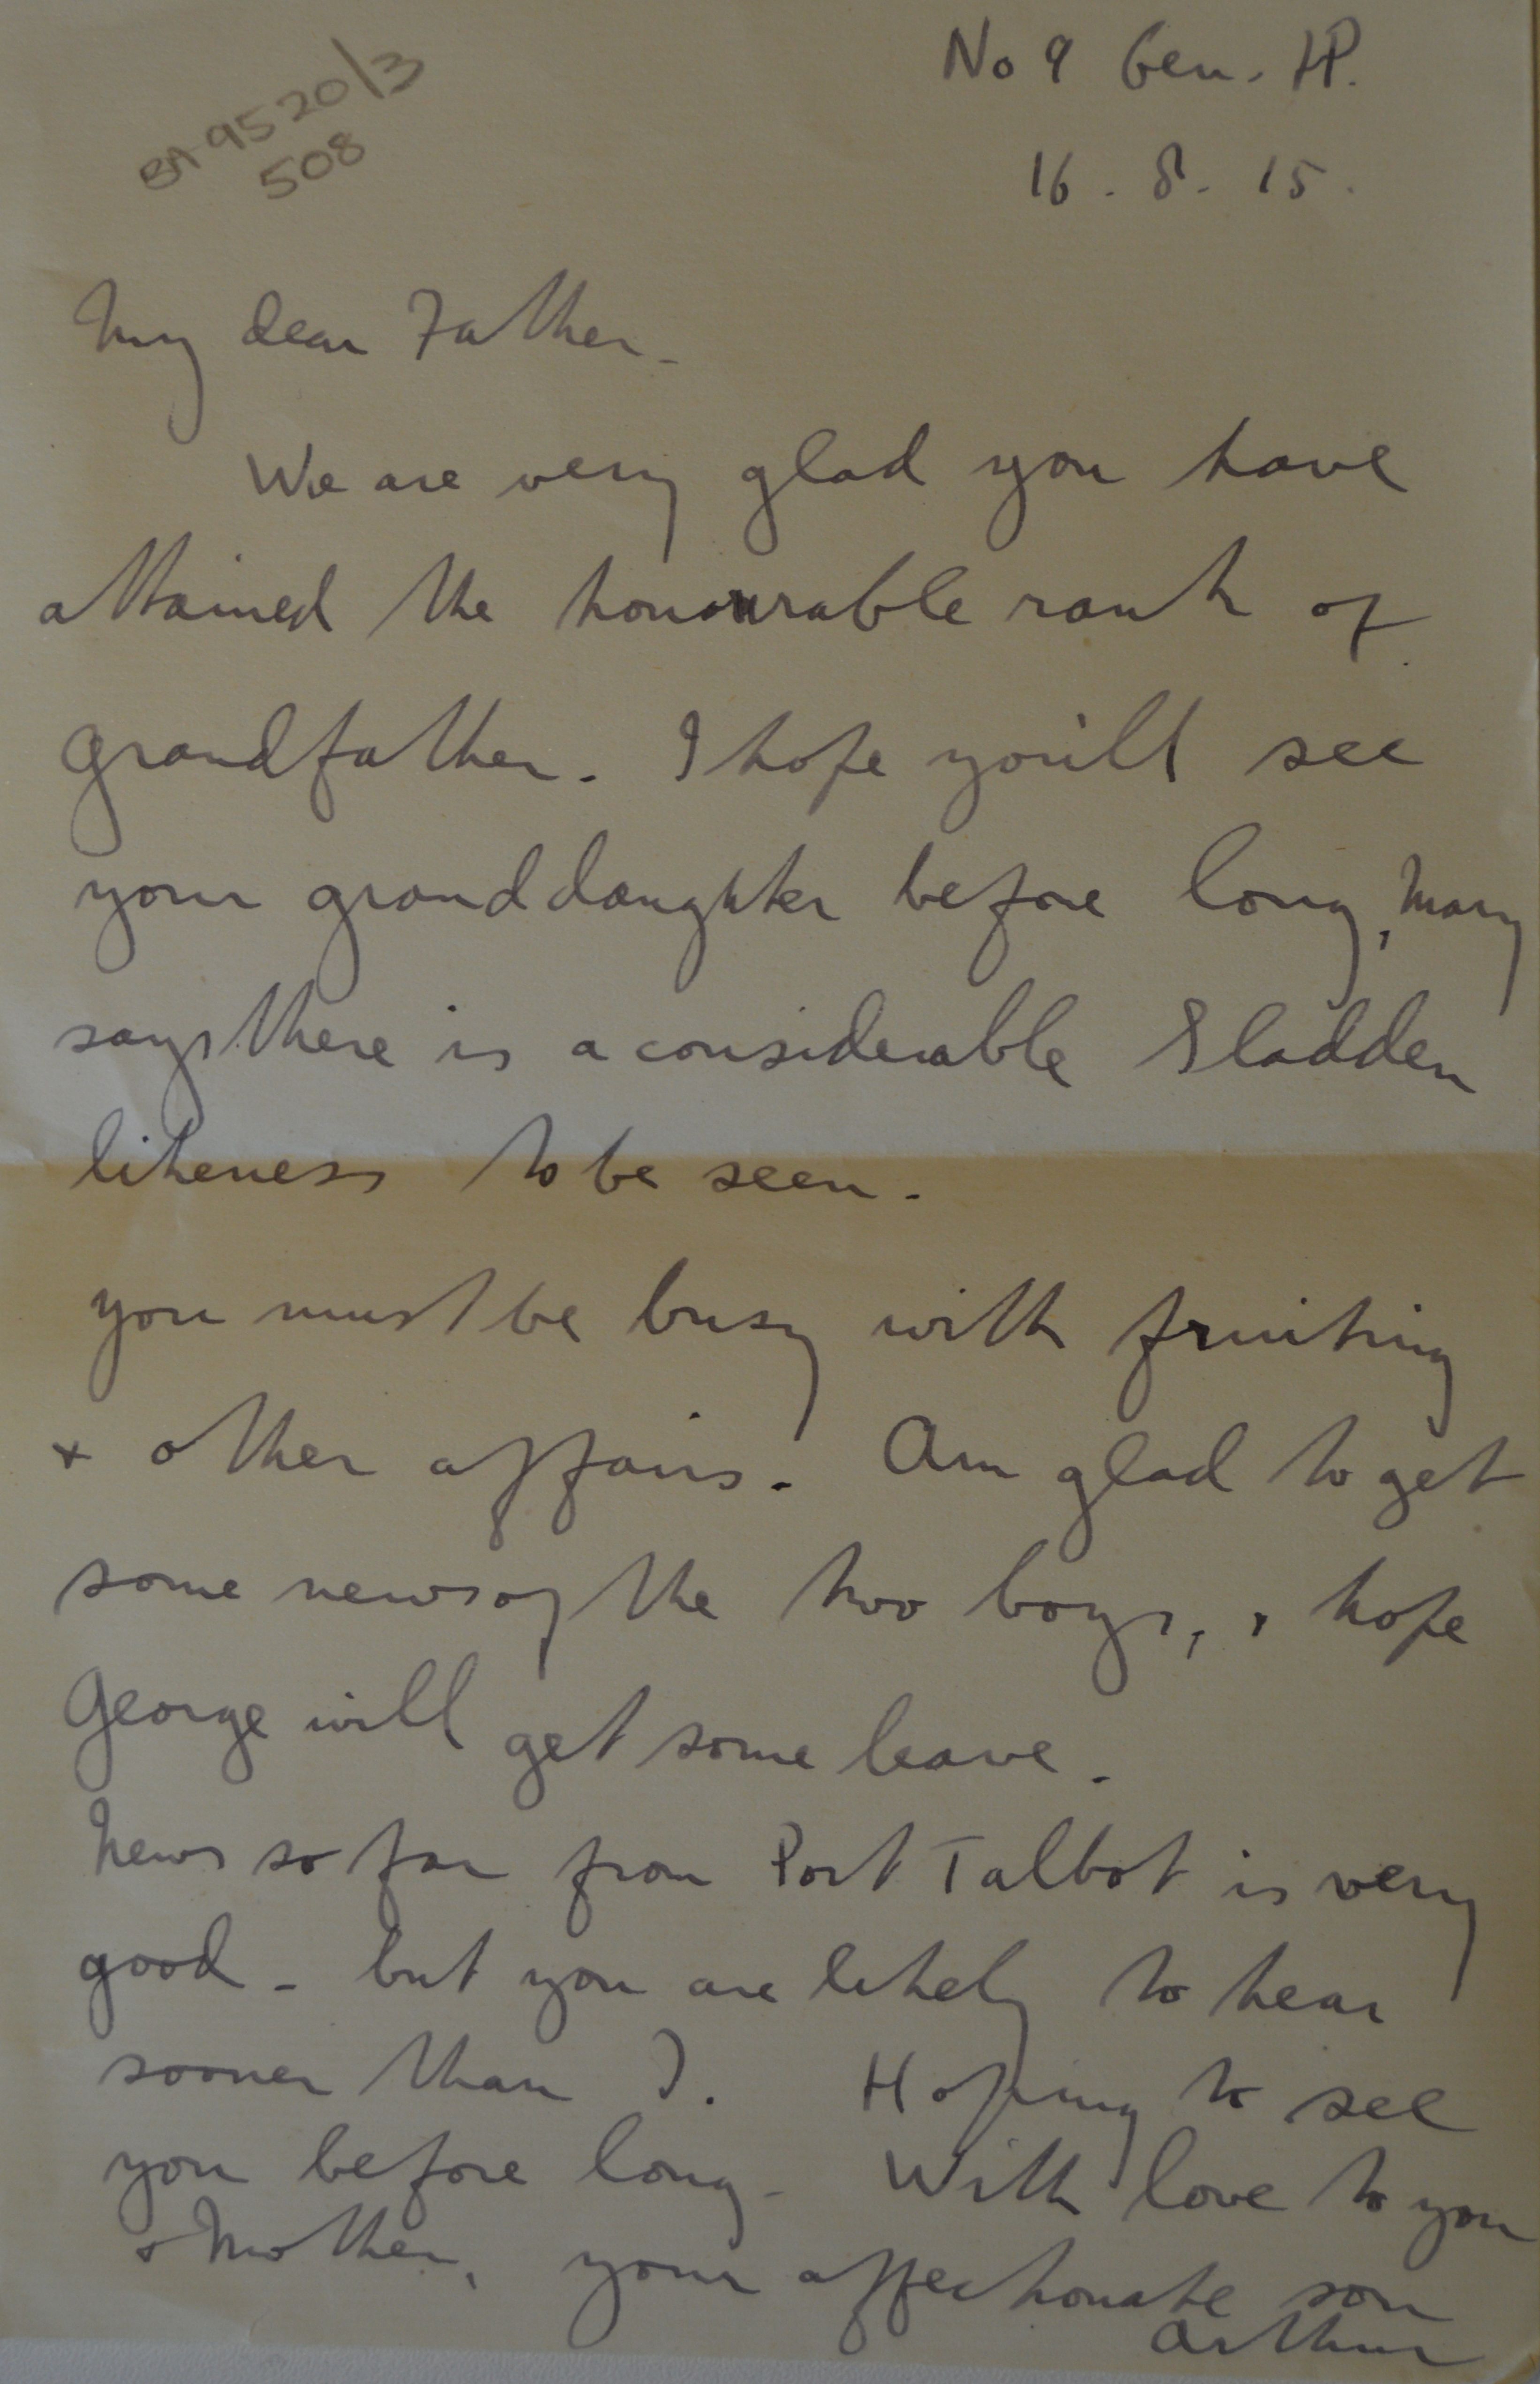 BA 9520/3
508
No 9 Gen. HP.
16. 8. 15.
My dear Father.
We are very glad you have
attained the honourable rank of
grandfather. I hope you'll see
your granddaughter before long, Mary
says there is a considerable Sladden
likeness to be seen.
you must be busy with fruiting
+ other affairs. Am glad to get
some news of the two boys, + hope
George will get some leave.
News so far from Port Talbot is very
good - but you are likely to hear
sooner than I. Hoping to see
you before long. With love to you
+ Mother, your affectionate son
Arthur